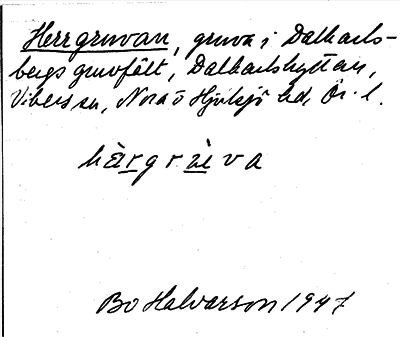 Herrgruvan, gruva i Dalkarls-
bergs gruvfält, Dalkarlshyttan,
Vikers sn, Nora o Hjulsjö bd, Ör. l.
hàrgrùva
Bo Halvarson 1947